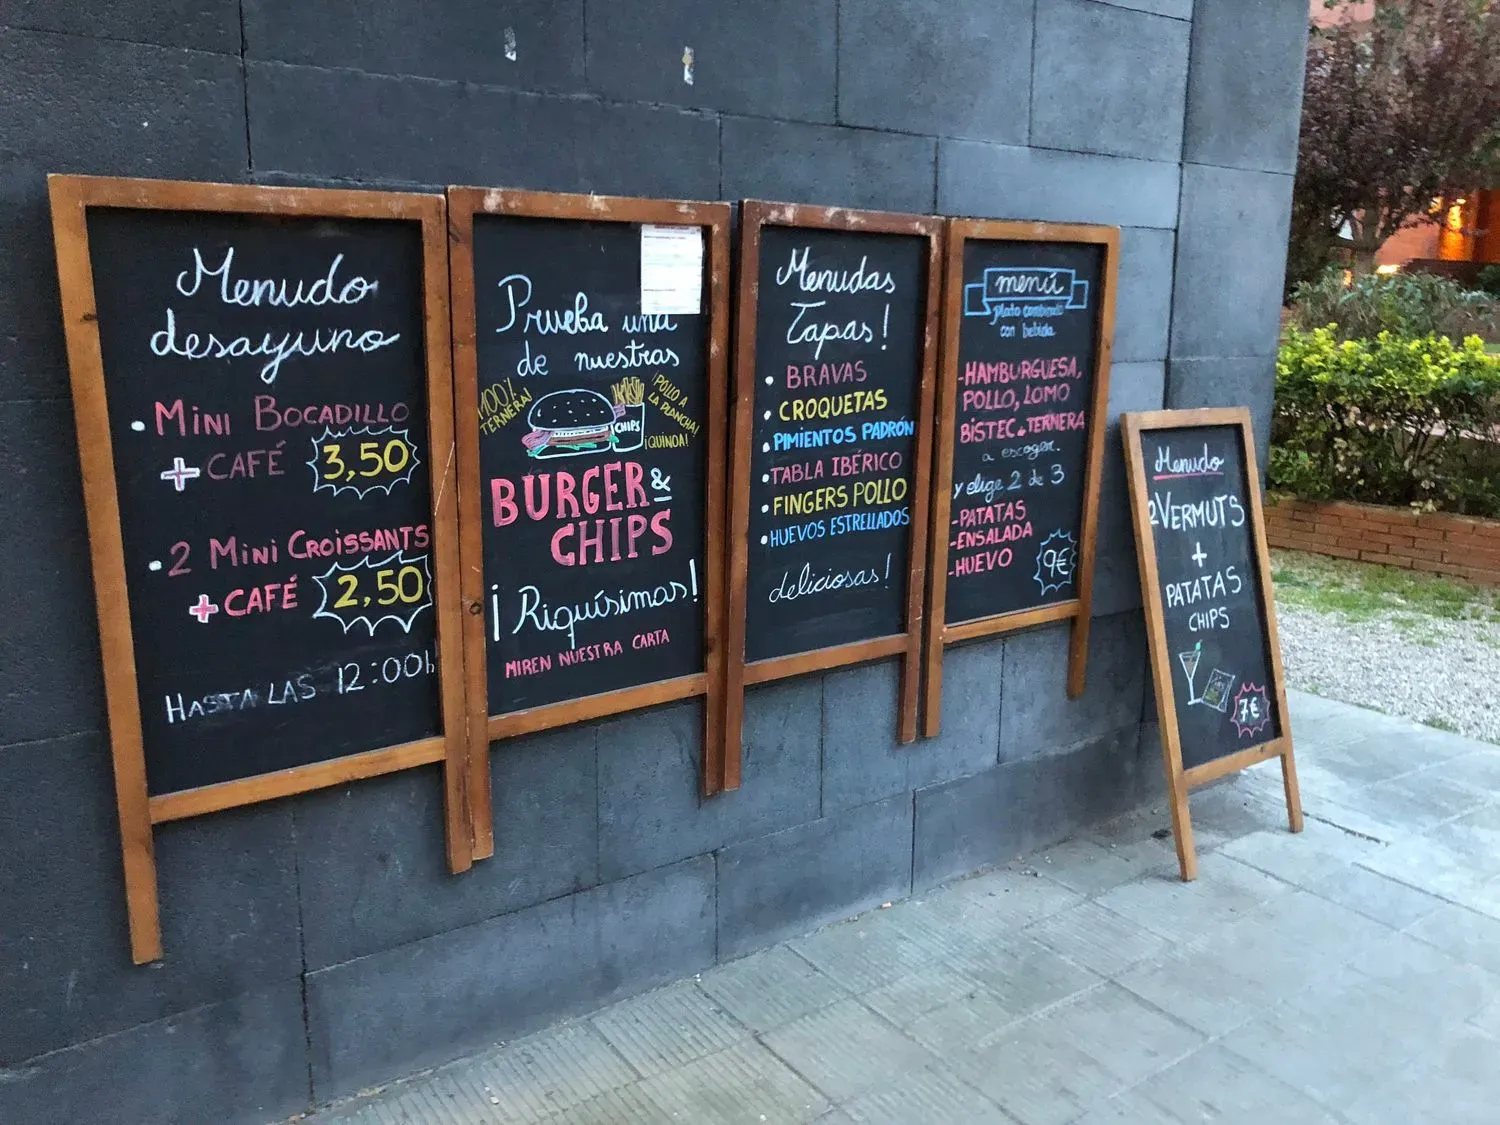 Menudo
desayuno
• Mini Bocadillo
+ CAFÉ 3,50
• 2 Mini Croissants
+ CAFÉ 2,50
HASTA LAS 12:00h
Prueba una
de nuestras
100%
TERNERA!
¡POLLO A
LA PLANCHA!
CHIPS
¡QUINOA!
BURGER &
CHIPS
¡Riquísimas!
MIREN NUESTRA CARTA
Menudas
Tapas!
• BRAVAS
• CROQUETAS
• PIMIENTOS PADRÓN
• TABLA IBÉRICO
• FINGERS POLLO
• HUEVOS ESTRELLADOS
deliciosas!
menú
plato combinado
con bebida
-HAMBURGUESA,
POLLO, LOMO
BISTEC TERNERA
a escoger.
y elige 2 de 3
-PATATAS
-ENSALADA
-HUEVO
9€
Menudo
2 VERMUTS
+
PATATAS
CHIPS
7€